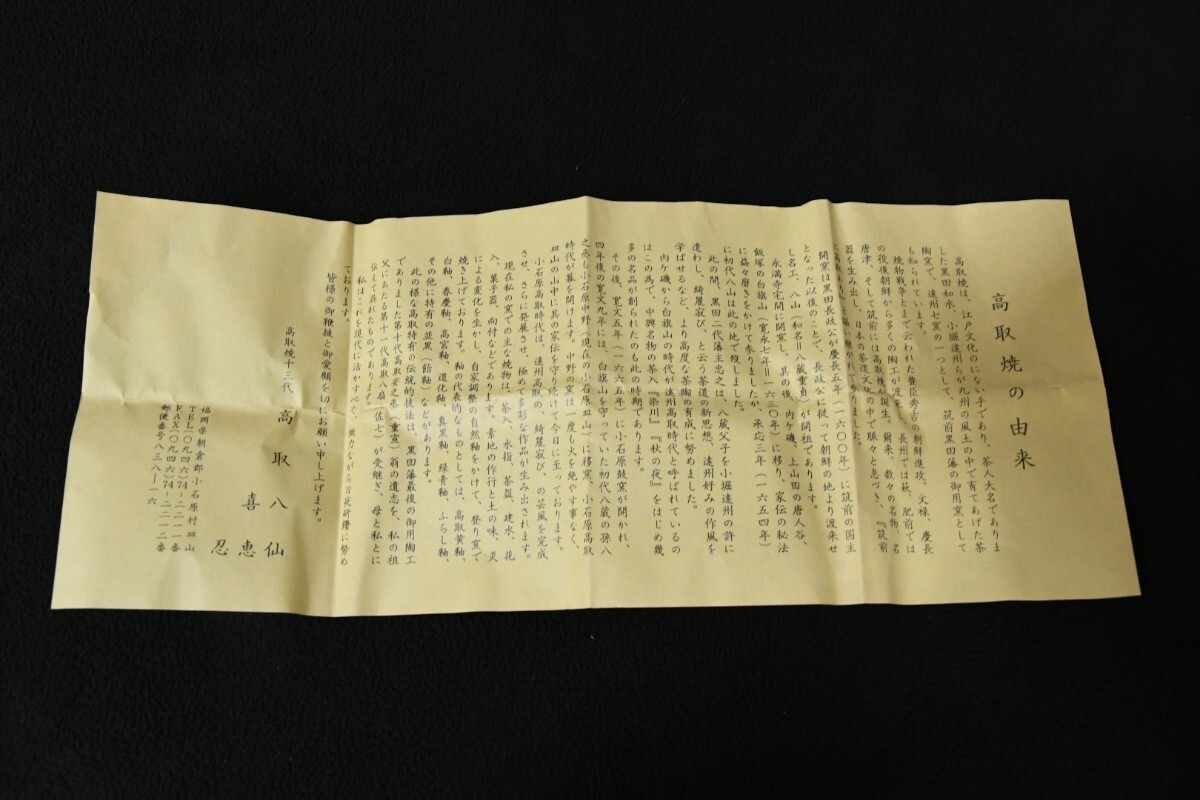 高取焼の由来
高取焼は、江戸文化のにない手であり、茶人大名でありま
した黒田如水、小堀遠州らが九州の風土の中で育てあげた茶
陶窯で、遠州七窯の一つとして、筑前黒田藩の御用窯として
も知られています。
焼物戦争とまで云われた豊臣秀吉の朝鮮進攻、文禄、慶長
の役後朝鮮から多くの陶工が渡来、長州では萩、肥前では
唐津、そして筑前には高取焼が誕生。爾来、数々の名物、名
器を生み出し、日本の茶道文化の中で脈々と息づき、『筑前
に高取あり』と
開窯は黒田長政公が慶長五年(一六〇〇年)に筑前の国主
となった以後のことで、長政公に従って朝鮮の地より渡来せ
し名工、八山(和名=八蔵重貞)が開祖であります。
永満寺宅間に開窯し、其の後、内ケ磯、上山田の唐人谷、
飯塚の白旗山(寛永七年=一六三〇年)に移り、家伝の秘法
に益々磨きをかけて参りましたが、承応三年(一六五四年)
に初代八山は此の地で歿しました。
此の間、黒田二代藩主忠之は、八蔵父子を小堀遠州の許に
遣わし、綺麗寂び、と云う茶道の新思想、遠州好みの作風を
学ばせるなど、より高度な茶陶の育成に努めました。
内ケ磯から白旗山の時代が遠州高取時代と呼ばれているの
はこの為で、中興名物の茶入『染川』『秋の夜』をはじめ幾
多の名品が創られたのも此の時期であります。
その後、寛文五年(一六六五年)に小石原鼓窯が開かれ、
四年後の寛文九年には、白旗山を守っていた初代八蔵の孫八
之丞も小石原中野(現在の小石原皿山)に移窯、小石原高取
時代が幕を開けます。中野の窯は一度も火を絶やす事なく、
皿山の山中に其の家伝を守り続けて今日に至っております。
小石原高取時代は、遠州高取の、綺麗寂び、の芸風を完成
させ、さらに発展させ、極めて多彩な作品が生み出されます。
現在私の窯での主な焼物は、茶入、水指、茶盌、建水、花
入、菓子器、向付などであります。素地の作行と土の味、炎
による変化を生かし、自家調整の自然釉をかけて、登り窯で
焼き上げております。釉の代表的なものとしては、高取黄釉、
白釉、春慶釉、高宮釉、道化釉、真黒釉、緑青釉、ふらし釉、
その他に特有の並黒(飴釉)などがあります。
此の様な高取特有の伝統的技法は、黒田藩最後の御用陶工
でありました第十代高取姿之丞(重宣)翁の遺志を、私の祖
父にあたる第十一代高取八扇(佐七)が受継ぎ、母と私とに
伝えて呉れたものであります。
私はこれを現代に活かすべく、微力ながら日夜研鑽に努め
ております。
皆様の御鞭撻と御愛顧を切にお願い申し上げます。
高取焼十三代 高取八仙
喜恵
忍
福岡県朝倉郡小石原村皿山
TEL(〇九四六)74-二二一一番
FAX(〇九四六)74-二二一二番
郵便番号八三八-一六